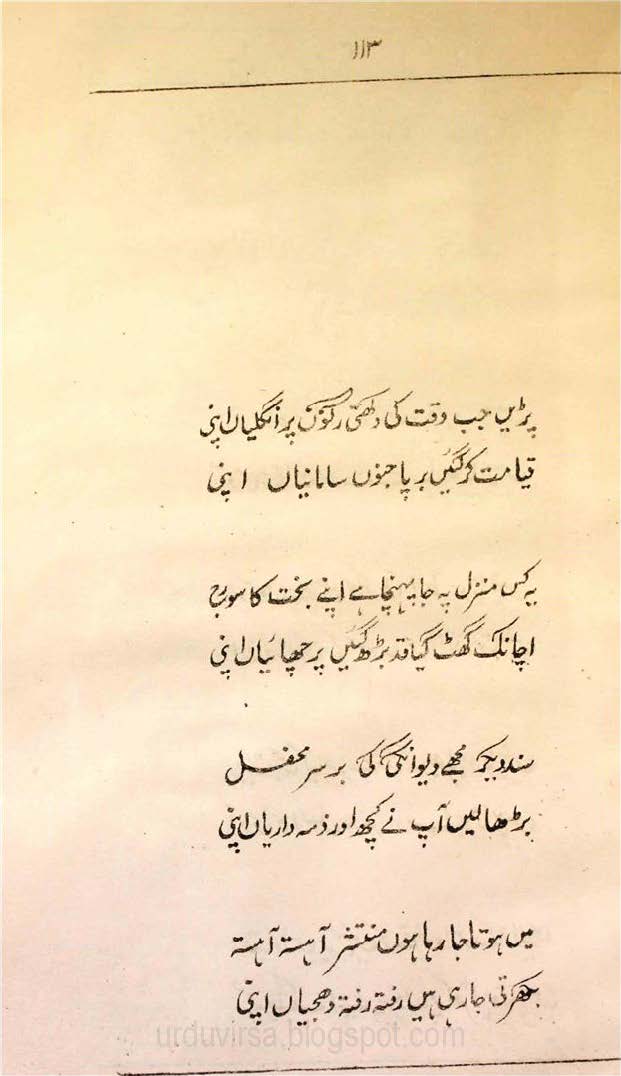 ۱۱۳
پڑیں جب وقت کی دکھتی رگوں پر انگلیاں اپنی
قیامت کر گئیں برپا جنوں سامانیاں اپنی
یہ کس منزل پہ جا پہنچا ہے اپنے بخت کا سورج
اچانک گھٹ گیا قد بڑھ گئیں پرچھائیاں اپنی
سند دیکر مجھے دیوانگی کی بر سرِ محفل
بڑھا لیں آپ نے کچھ اور ذمہ داریاں اپنی
میں ہوتا جا رہا ہوں منتشر آہستہ آہستہ
بکھرتی جا رہی ہیں رفتہ رفتہ دھجیاں اپنی
urduvirsa.blogspot.com